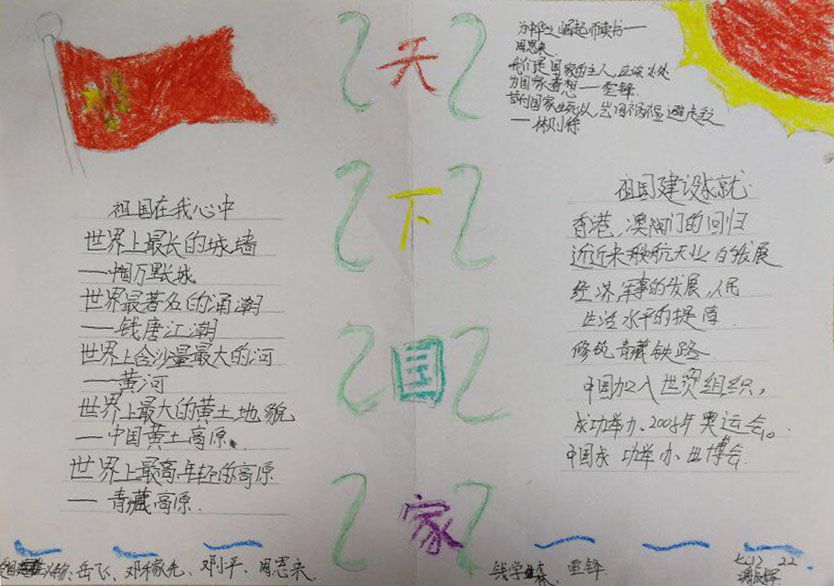 天
下
国
家
为中华之崛起而读书——
周恩来
我们是国家的主人,应该处处
为国家着想——雷锋
苟利国家生死以,岂因祸福避趋之
——林则徐
祖国在我心中
世界上最长的城墙
——中国万里长城
世界最著名的涌潮
——钱唐江潮
世界上含沙量最大的河
——黄河
世界上最大的黄土地貌
——中国黄土高原。
世界上最高年轻的高原
——青藏高原.
祖国建设成就
香港,澳门的回归
近近来我航天业的发展
经济军事的发展,人民
生活水平的提高
修筑青藏铁路
中国加入世贸组织,
成功举办.2008年奥运会。
中国成功举办世博会
岳飞、邓稼先、邓小平、周恩来、
钱学森、雷锋
22